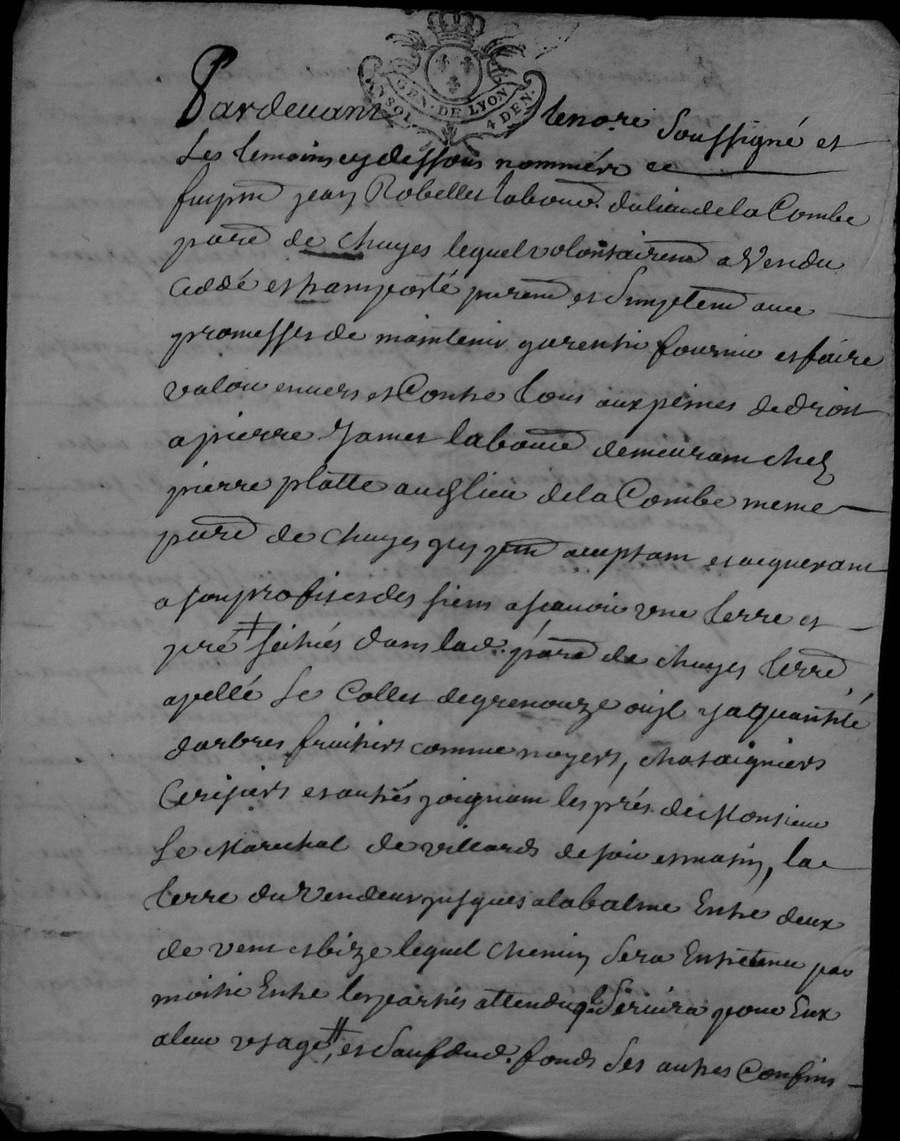 GEN. DE LYON
UN SOL. 4 DEN.
Pardevant le no.re Soussigné et
Les temoins cy dessous nommés ce
fut pnt jean Robellet labour. du lieu de la Combe
paroe de chuyes lequel volontairemt a Vendu
Ceddé et tramporté puremt et Simplemt avec
promesses de maintenir garentir fournir et faire
valoir envers et Contre tous aux peines de droit
a pierre Jamet laboure demeurant chez
pierre platte audt lieu de la Combe meme
paroe de chuyes icy pnt acceptant et acquerant
a son profit et des siens a scavoir une terre et
pré ‡ scitués dans lad. paroe de chuyes terre
apellé Le Collet de grenouze ou il y a quantité
darbres fruitiers comme noyers, chataigniers
Cerisiers et autres joignant les prés de Monsieur
Le Marechal de villards de soir et matin, la
terre du Vendeur jusques a la balme Entre deux
de vent et bize lequel chemin Sera Entretenu par
moitié Entre les parties attendu ql. Servira pour Eux
a leur usage, ‡ et Sauf dud. fonds Ses autres Confins